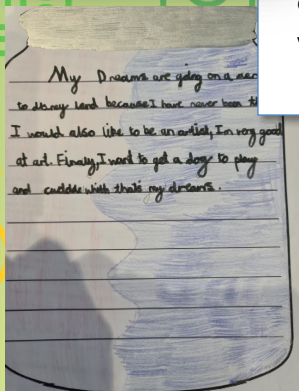 My Dreams are going on a
to disney land because I have never been
I would also like to be an artist, I'm very good
at art. Finally, I want to get a dog to play
and cuddle with that's my dreams.